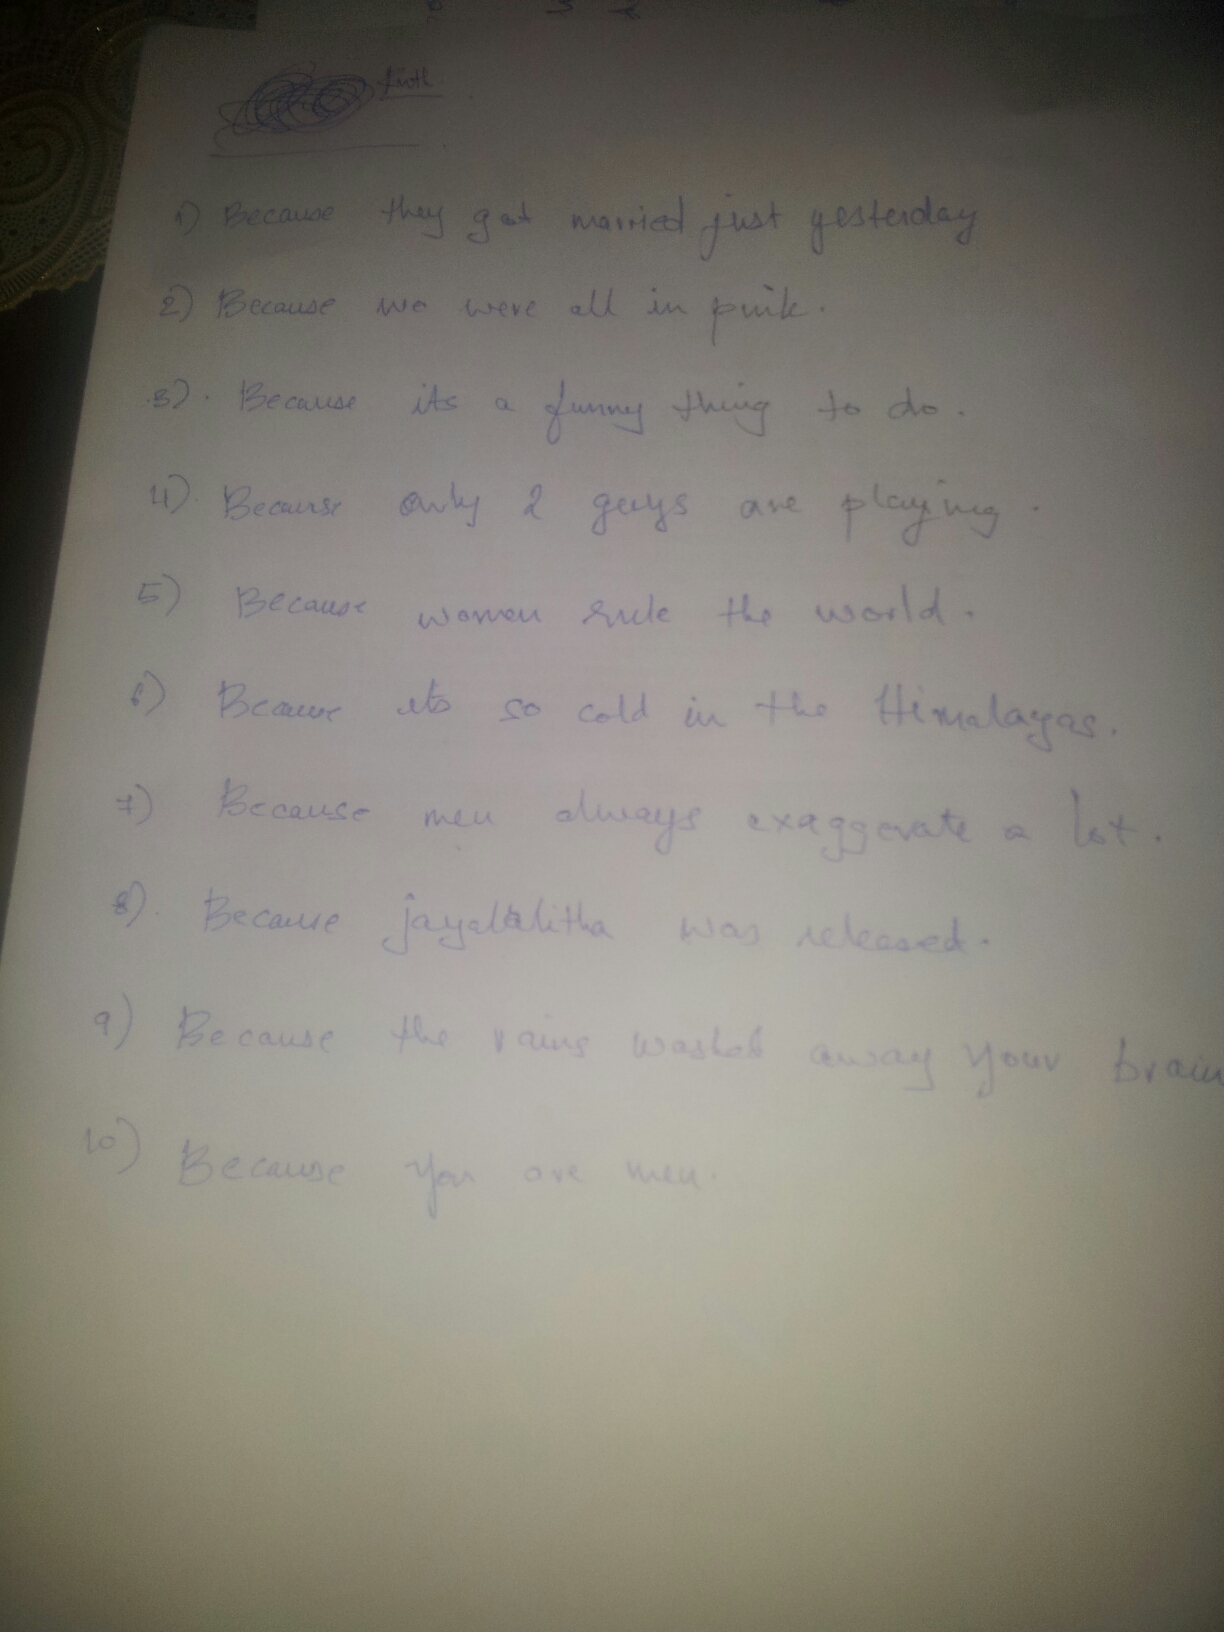 1) Because they got married just yesterday
2) Because we were all in pink.
3). Because its a funny thing to do.
4). Because only 2 guys are playing.
5) Because women rule the world.
6) Because its so cold in the Himalayas.
7) Because men always exaggerate a lot.
8). Because jayalalitha was released.
9) Because the rains washed away your brain
10) Because you are men.